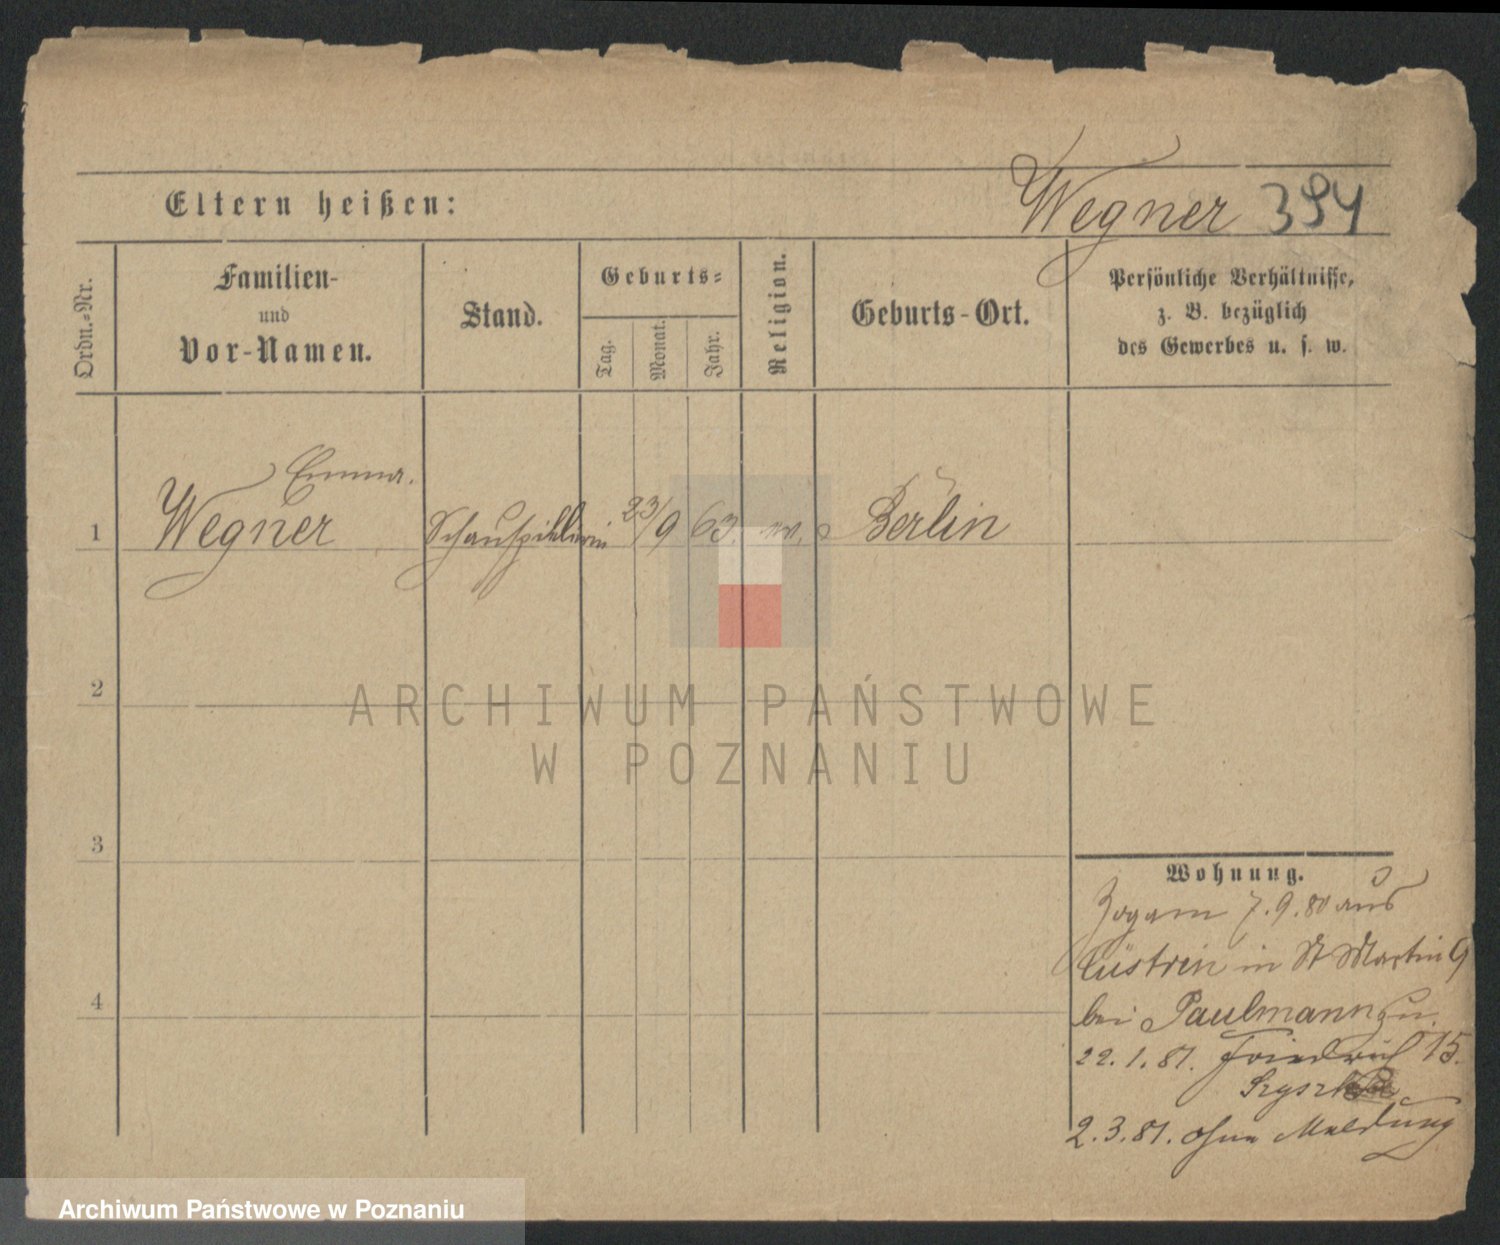 Eltern heißen:
Wegner 394
Ordn.-Nr.
Familien-
und
Vor-Namen.
Stand.
Geburts-
Tag.
Monat.
Jahr.
Religion.
Geburts-Ort.
Persönliche Verhältnisse,
z. B. bezüglich
des Gewerbes u. s. w.
Emma.
1 Wegner Schauspielerin 23/9 63. Berlin
2
3
4
Wohnung.
Zogam 7.9.80 aus
Cüstrin in St Martin 9
bei Paulmann zu.
22.1.81. Friedrich 15.
2.3.81. ohne Meldung
ARCHIWUM PAŃSTWOWE
W POZNANIU
Archiwum Państwowe w Poznaniu